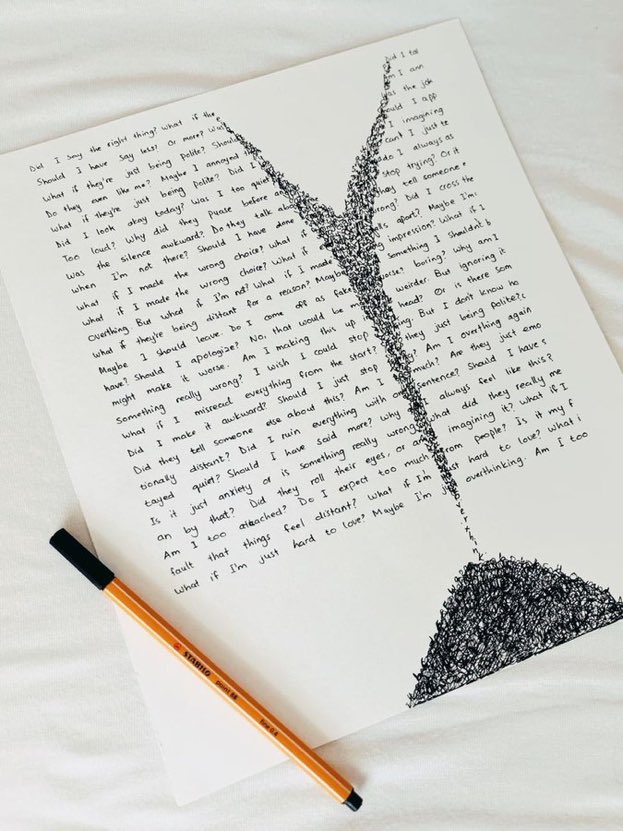 Did I say the right thing? What if the Did I tal
Should I have say less? Or more? Was m I ann
What if they're just being polite? Should was the jok
Do they even like me? Maybe I annoyed the hould I app
what if they're just being polite? Did I I imagining
Did I look okay today? Was I too quiet can't I just te
Too loud? Why did they puase before do I always as
Was the silence awkward? Do they talk abo stop trying? Or it
when I'm not there? Should I have done they tell someone e
what if I made the wrong choice? What if wrong? Did I cross the
what if I made the wrong choice? What if ts apart? Maybe I'm
Overthing But what if I'm not? What if I made g impression? What if I
what if they're being distant for a reason? Mayb something I shouldnt b
Maybe I should leave. Do I come off as fake else? boring? Why am I
have? Should I apologize? No, that would be weirder. But ignoring it
might make it worse. Am I making this up head? Or is there som
something really wrong? I wish I could stop ng. But I don't know ho
What if I misread everything from the start? they just being polite?c
Did I make it awkward? Should I just stop Am I overthing again
Did they tell someone else about this? Am I much? Are they just emo
tionally distant? Did I ruin everything with o sentence? Should I have s
tayed quiet? Should I have said more? Why always feel like this?
Is it just anxiety or is something really wrong what did they really me
an by that? Did they roll their eyes, or am imagining it? What if I
Am I too attached? Do I expect too much from people? Is it my f
fault that things feel distant? What if I'm just hard to love? What i
What if I'm just hard to love? Maybe I'm just overthinking. Am I too
overthink
STABILO point 88 fine 0.4